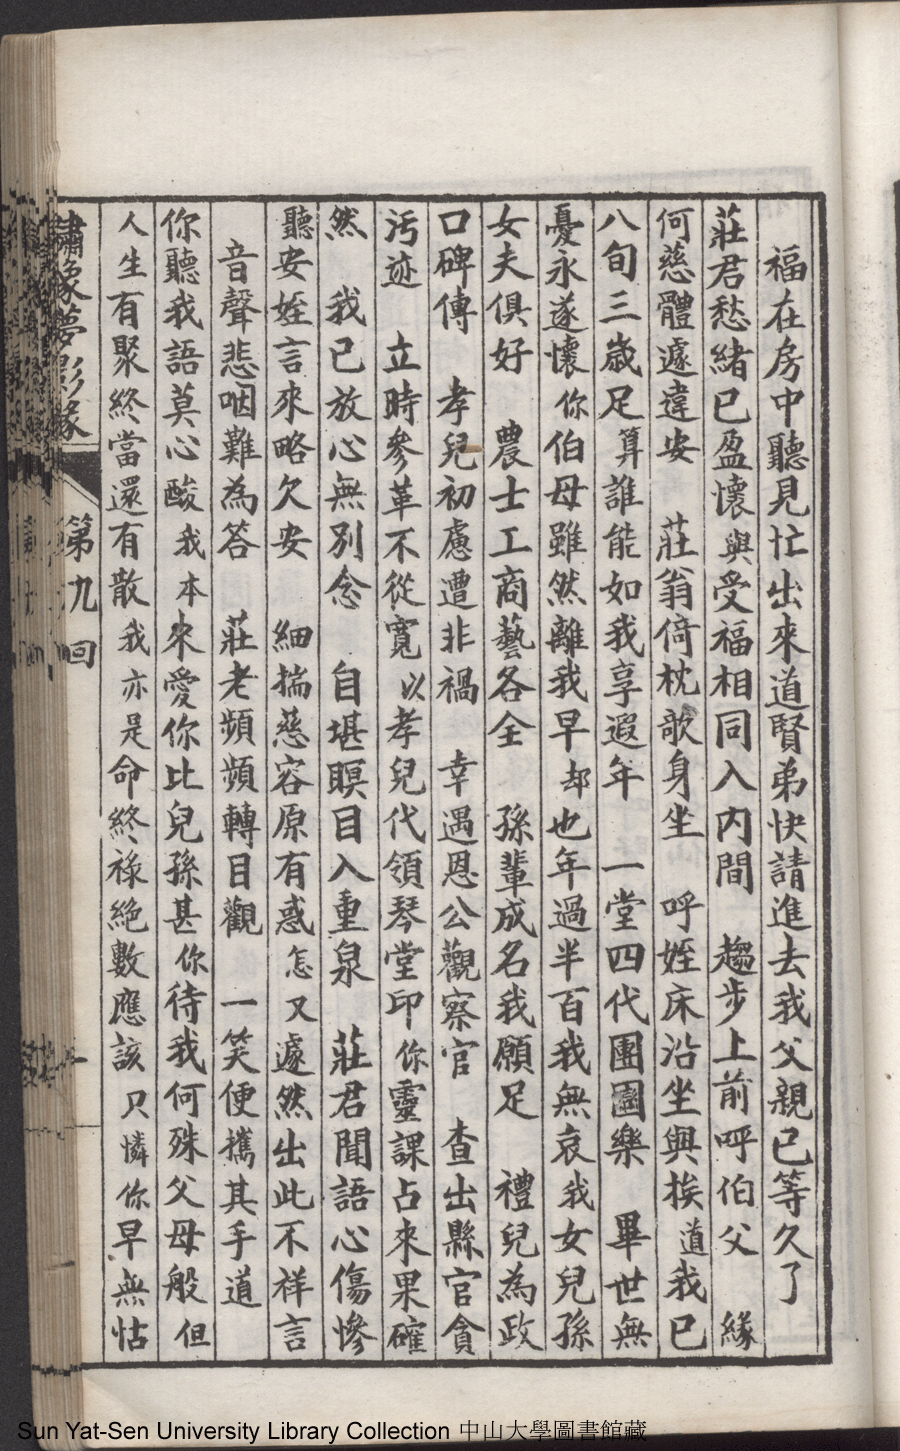 福在房中聽見忙出來道賢弟快請進去我父親已等久了
莊君愁緒已盈懷與受福相同入內間 趨步上前呼伯父 緣
何慈體遽違安 莊翁倚枕歌身坐 呼姪床沿坐與挨道我已
八旬三歲足算誰能如我享遐年 一堂四代團圞樂 畢世無
憂永遂懷你伯母雖然離我早却也年過半百我無哀我女兒孫
女夫俱好 農士工商藝各全 孫輩成名我願足 禮兒為政
口碑傳 孝兒初慮遭非禍 幸遇恩公觀察官 查出縣官貪
污迹 立時參革不從寬以孝兒代領琴堂印你靈課占來果確
然 我已放心無別念 自堪瞑目入重泉 莊君聞語心傷慘
聽安姪言來略欠安 細揣慈容原有惑怎又遽然出此不祥言
音聲悲咽難為答 莊老頻頻轉目觀 一笑便攜其手道
你聽我語莫心酸我本來愛你比兒孫甚你待我何殊父母般但
人生有聚終當還有散我亦是命終祿絕數應該只憐你早無怙
繡像夢影緣 第九回
Sun Yat-Sen University Library Collection 中山大學圖書館藏